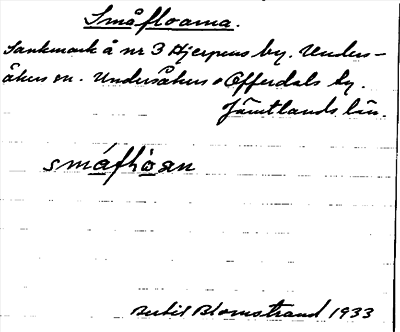 Småfloarna.
Sankmark å nr 3 Hjerpens by. Unders-
åkers sn. Undersåkers o Offerdals by.
Jämtlands län.
småflòan
Bertil Blomstrand 1933